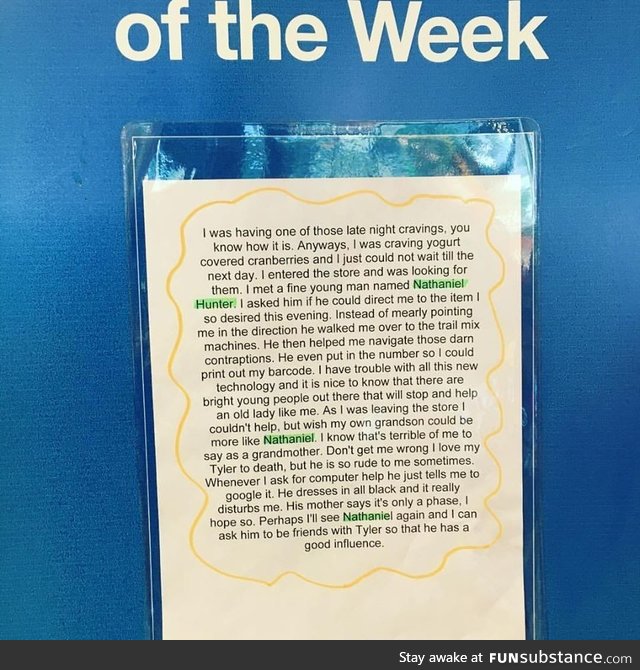 of the Week
I was having one of those late night cravings, you
know how it is. Anyways, I was craving yogurt
covered cranberries and I just could not wait till the
next day. I entered the store and was looking for
them. I met a fine young man named Nathaniel
Hunter. I asked him if he could direct me to the item I
so desired this evening. Instead of mearly pointing
me in the direction he walked me over to the trail mix
machines. He then helped me navigate those darn
contraptions. He even put in the number so I could
print out my barcode. I have trouble with all this new
technology and it is nice to know that there are
bright young people out there that will stop and help
an old lady like me. As I was leaving the store I
couldn't help, but wish my own grandson could be
more like Nathaniel. I know that's terrible of me to
say as a grandmother. Don't get me wrong I love my
Tyler to death, but he is so rude to me sometimes.
Whenever I ask for computer help he just tells me to
google it. He dresses in all black and it really
disturbs me. His mother says it's only a phase, I
hope so. Perhaps I'll see Nathaniel again and I can
ask him to be friends with Tyler so that he has a
good influence.
Stay awake at FUNsubstance.com